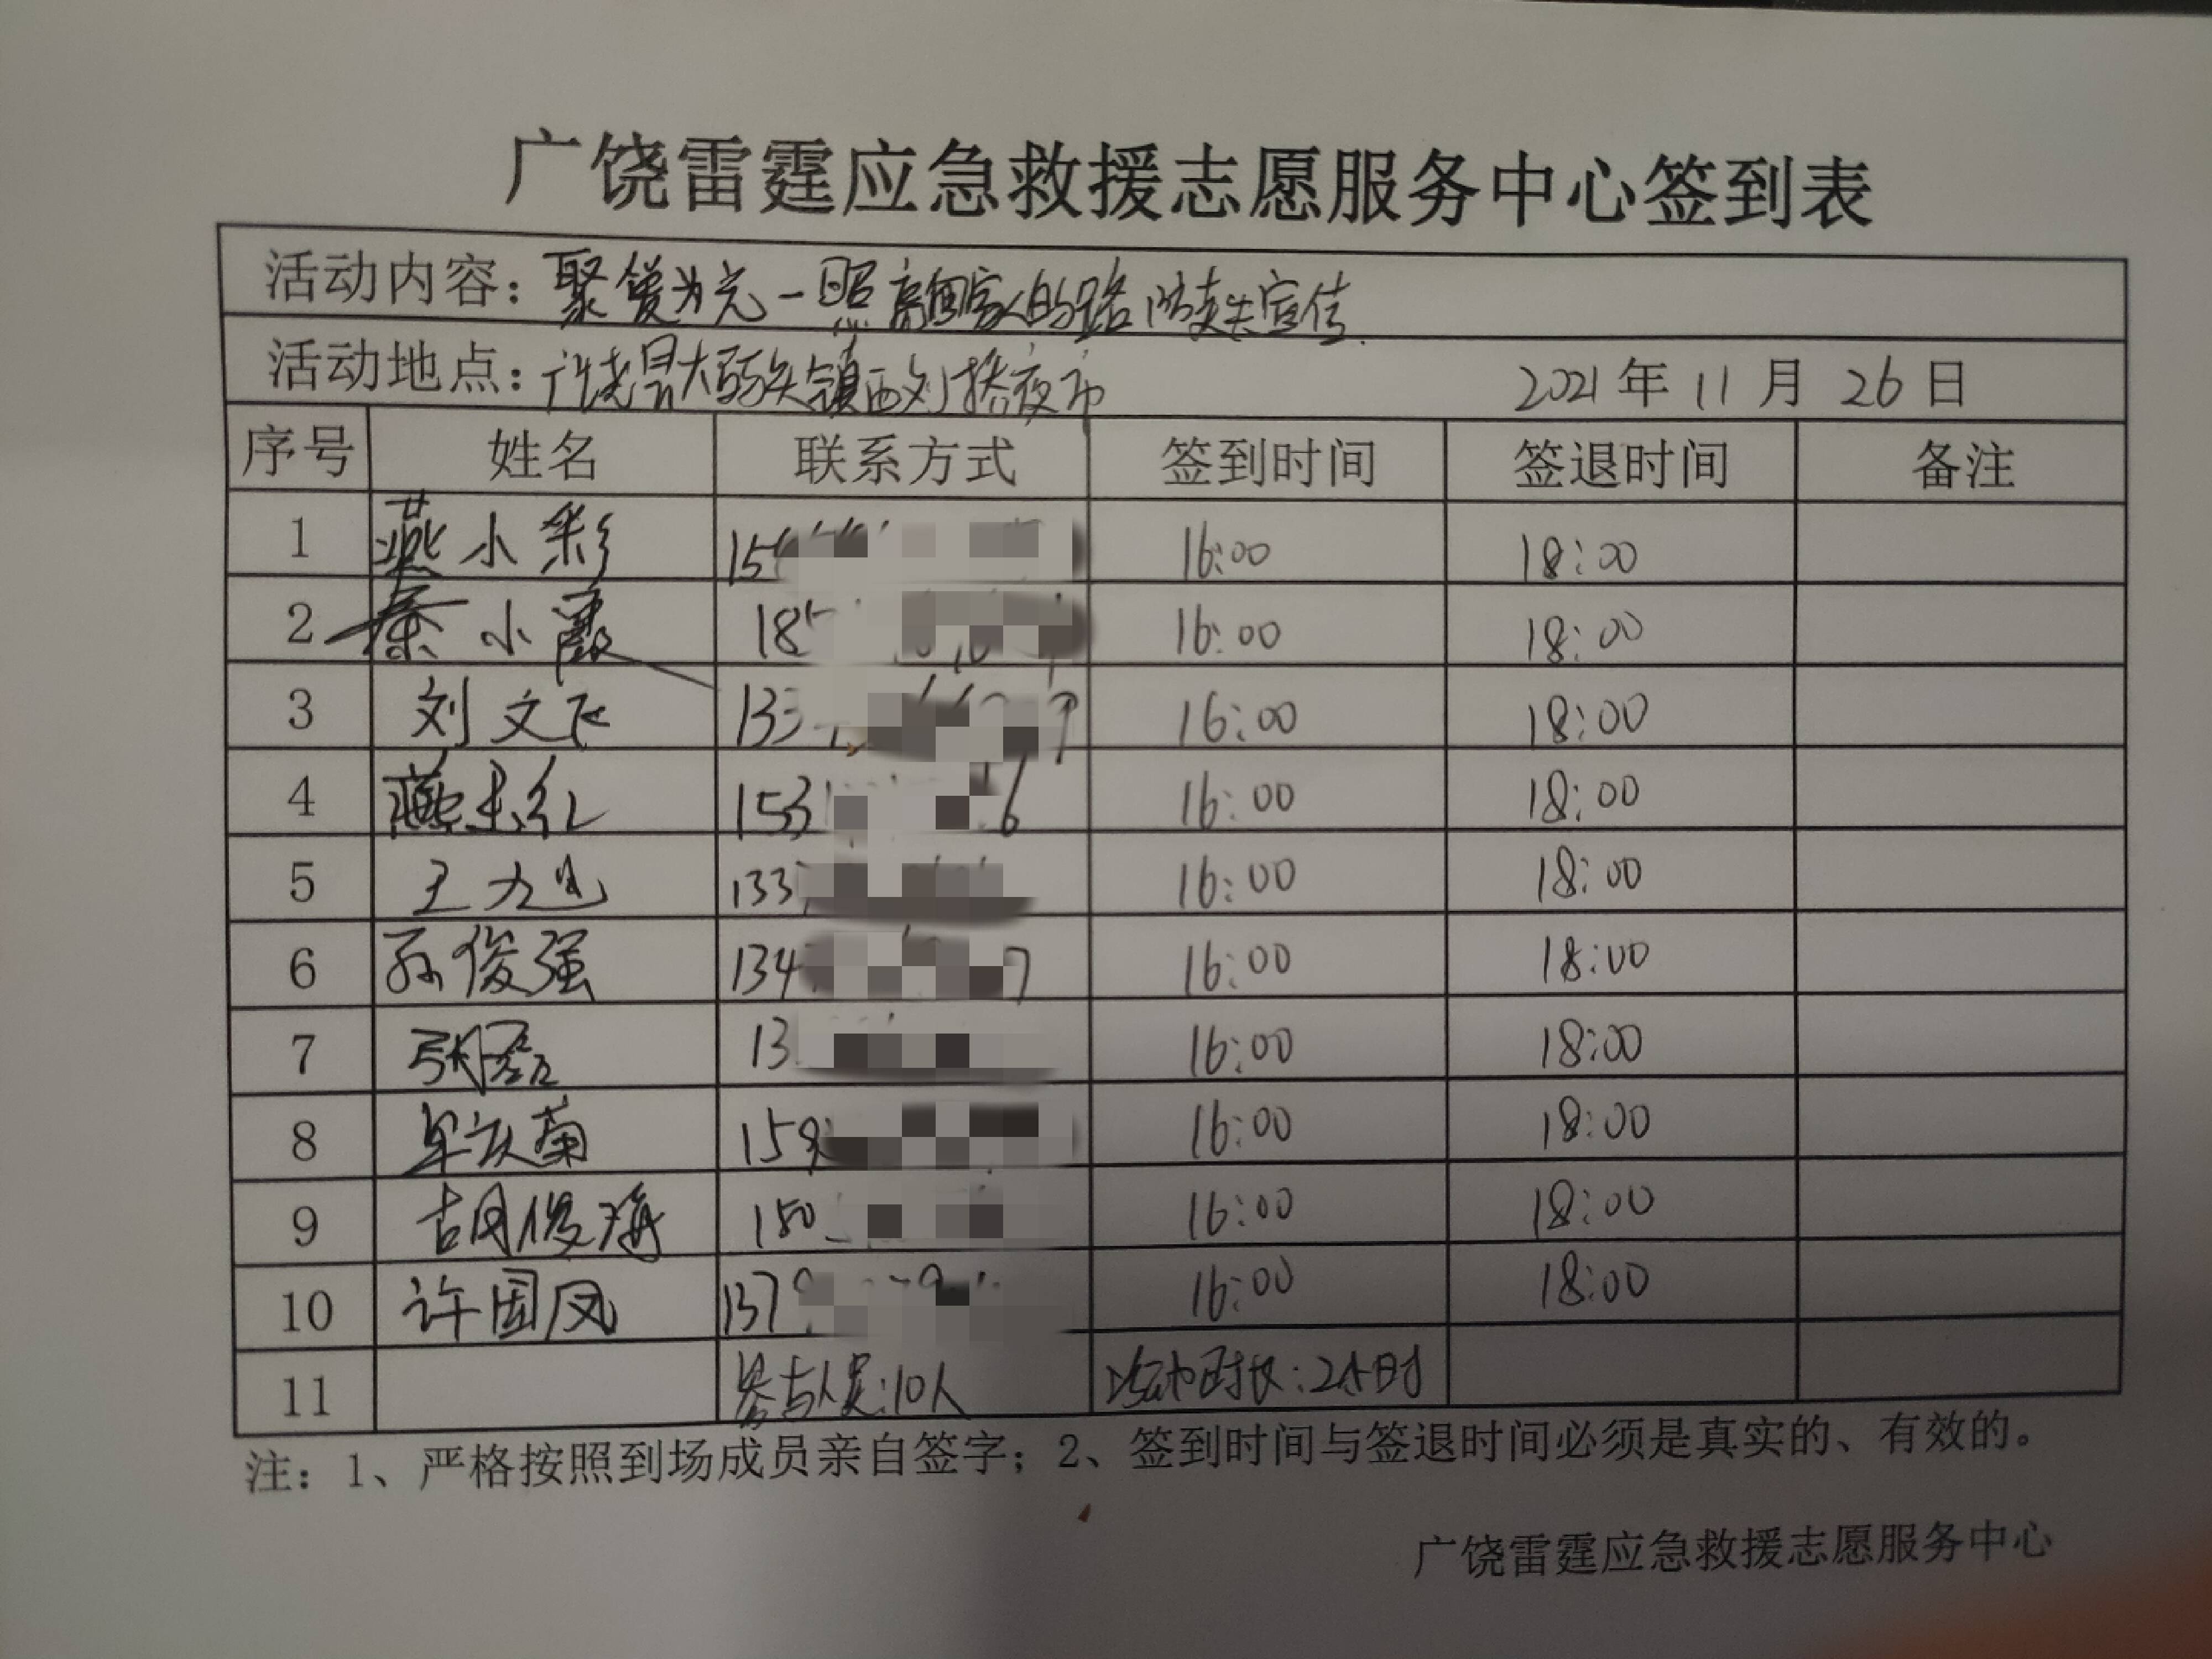 广饶雷霆应急救援志愿服务中心签到表
活动内容：聚爱为光一照亮回家的路 防走失宣传
活动地点：广饶县大码头镇西刘桥夜市 2021年11月26日
序号 姓名 联系方式 签到时间 签退时间 备注
1 燕小彩 15 16:00 18:00
2 秦小霞 185 16:00 18:00
3 刘文飞 133 16:00 18:00
4 燕红 1531 6 16:00 18:00
5 王 133 16:00 18:00
6 孙俊强 134 7 16:00 18:00
7 张磊 13 16:00 18:00
8 牟庆菊 159 16:00 18:00
9 胡俊海 150 16:00 18:00
10 许国凤 137 16:00 18:00
11 参与人员:10人 活动时长:2小时
注：1、严格按照到场成员亲自签字；2、签到时间与签退时间必须是真实的、有效的。
广饶雷霆应急救援志愿服务中心